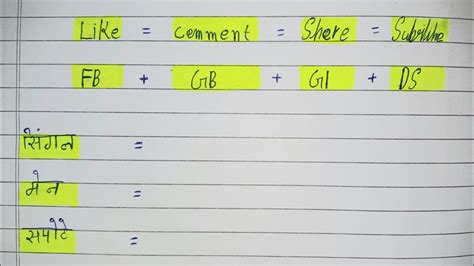 Like = comment = Share = Subscribe
FB + GB + GI + DS
सिंगल =
मेन =
सपोर्ट =